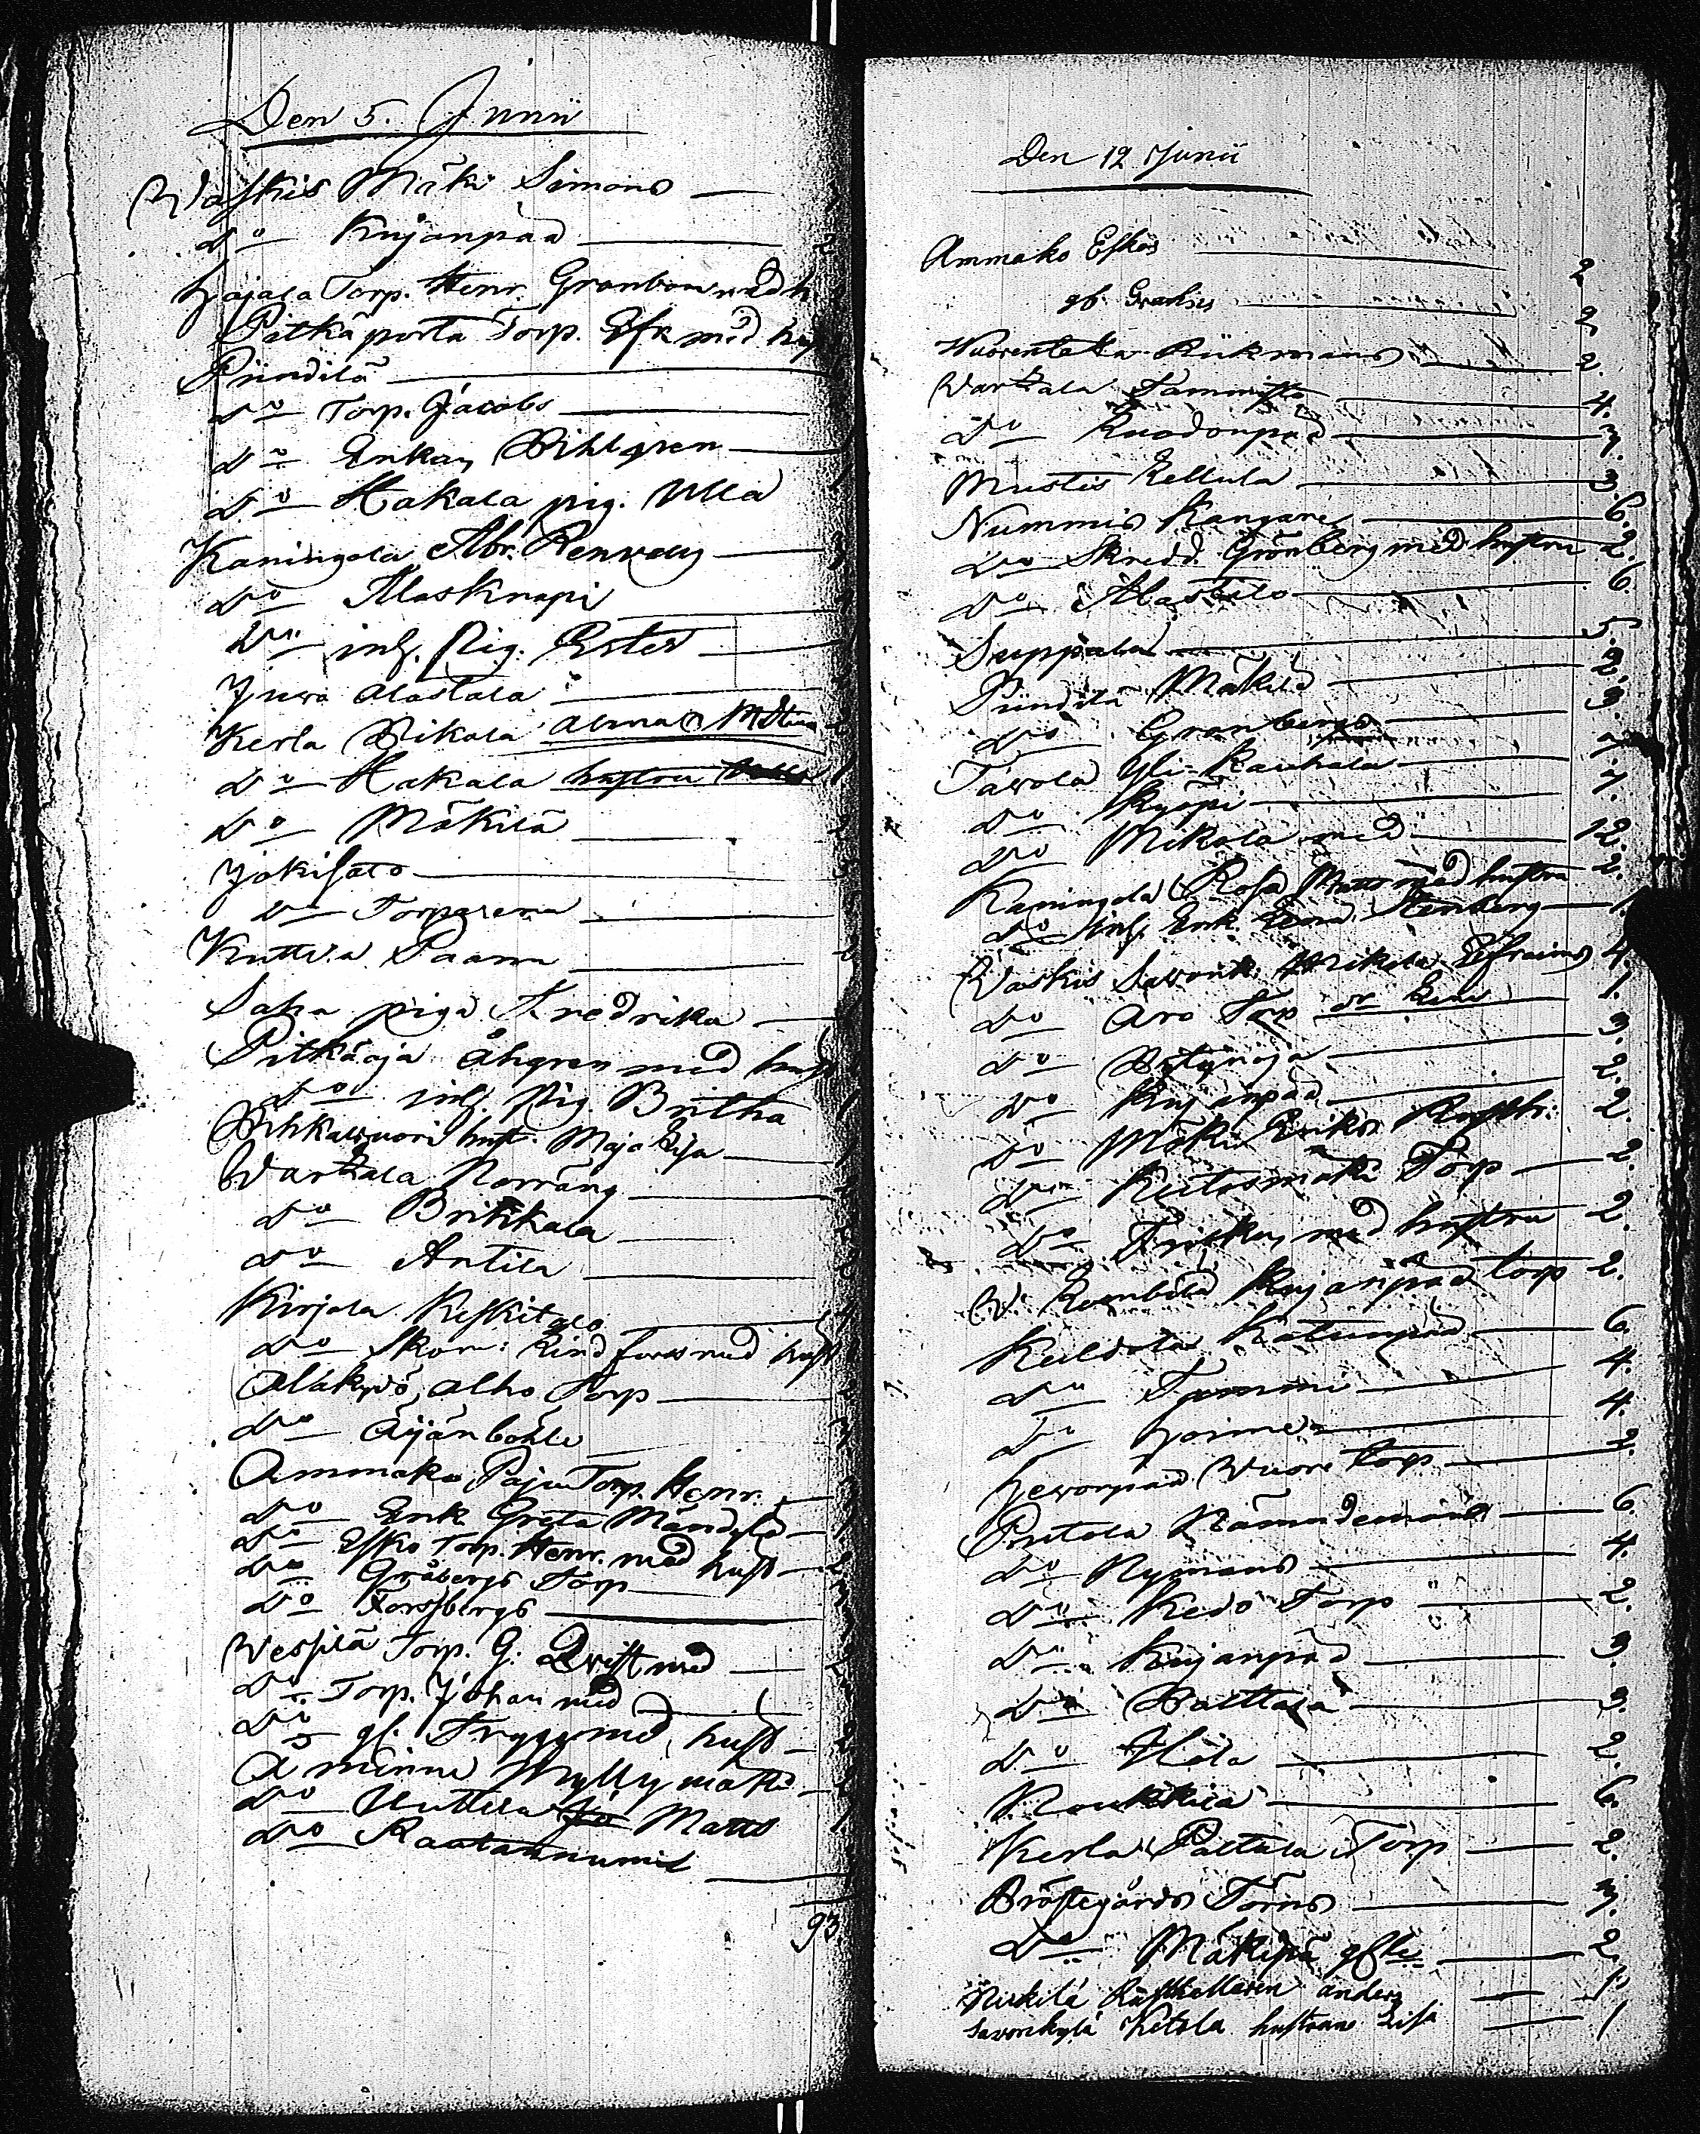 Den 5. Junii
Waskis Mäki Simons
Do Kujanpää 2
Hajala Torp. Henr. Granbom med h
Pitkäporta Torp. Efr. med hust
Pündilä
Do Torp. Jacobs
Do Enkan Wihlgren
Do Hakala pig. Ulla 1
Kaningola Abr. Renvall
Do Alasknapi
Do inh. Pig. Ester
Juva Alastala
Kerla Rikala
Do Hakala hustru 1
Do Mäkilä 2
Jokisato 3
Do Torparena
Kuttila Paanu
Saha piga Fredrika
Pitkäoja Åhgren med hust
Do inh. Pig. Britha 1
hust. Maja Lisa 1
Wartsala Norräng
Do Brihkala
Do Antila
Kirjala Keskitalo 4
Do Skom: Lindfors med hust
Alakylö, Alho Torp
Do Äijänböhle 3
Ammako, Paju Torp. Henr.
Do Enk. Greta Mändylä 1
Do Esko Torp. Henr. med hust 2
Do Gråbergs Torp 3
Do Forssbergs
Wessilä Torp. G: Qvist med 2
Do Torp. Johan med
Do gl. Trygg med hust 2
Åminne Myllymäki
Do Uuttela Matts 1
Do Raatannumi
93.
Den 12 Junii
Ammako Eskos 2
gb. Grahns 2
Wuorentaka Rükmans 2.
Wartsala Tammisto 4.
Do Ruodonpää 3.
Mustis Lellula 3.
Nummis Kangare 6.
Do Skredd. Grönberg med hustru 2.
Do Alastalo 6.
Suppala 5.
Pündilä Mäkilä 2.
Do Granbergs 3.
Tavola Yli-Kauhala 7.
Do Knäpi 7.
Do Mikola med 12.
Kaningola Rosa Matts med hustru 2.
Do inh. Enk. Lena Stenberg 1.
Waskis Savonk. Mikola Efraims 4.
Do Aro Torp 1.
Do 3.
Do Kujanpää 2.
Do Mäki Eriks Rusth: 2.
Do Torp 2.
Do med hustru 2.
Kujanpää torp 2.
Kaldola Katunpää 6.
Do Tammi 4.
Do Hoimes 4.
Hevonpää Wuori torp 2.
Pritala Nämndemans 6.
Do Nymans 4.
Do Kedo Torp 2.
Do Kujanpää 3.
Do Walttala 3.
Do Yläla 2.
Roukkila 6.
Kerla Pältula Torp 2.
Prästegårds Törns 3.
Do Mäkipä gfle 2.
Nickilä Rusthollaren Anders 1.
Savonkylä Ketola hustrun Lisa 1